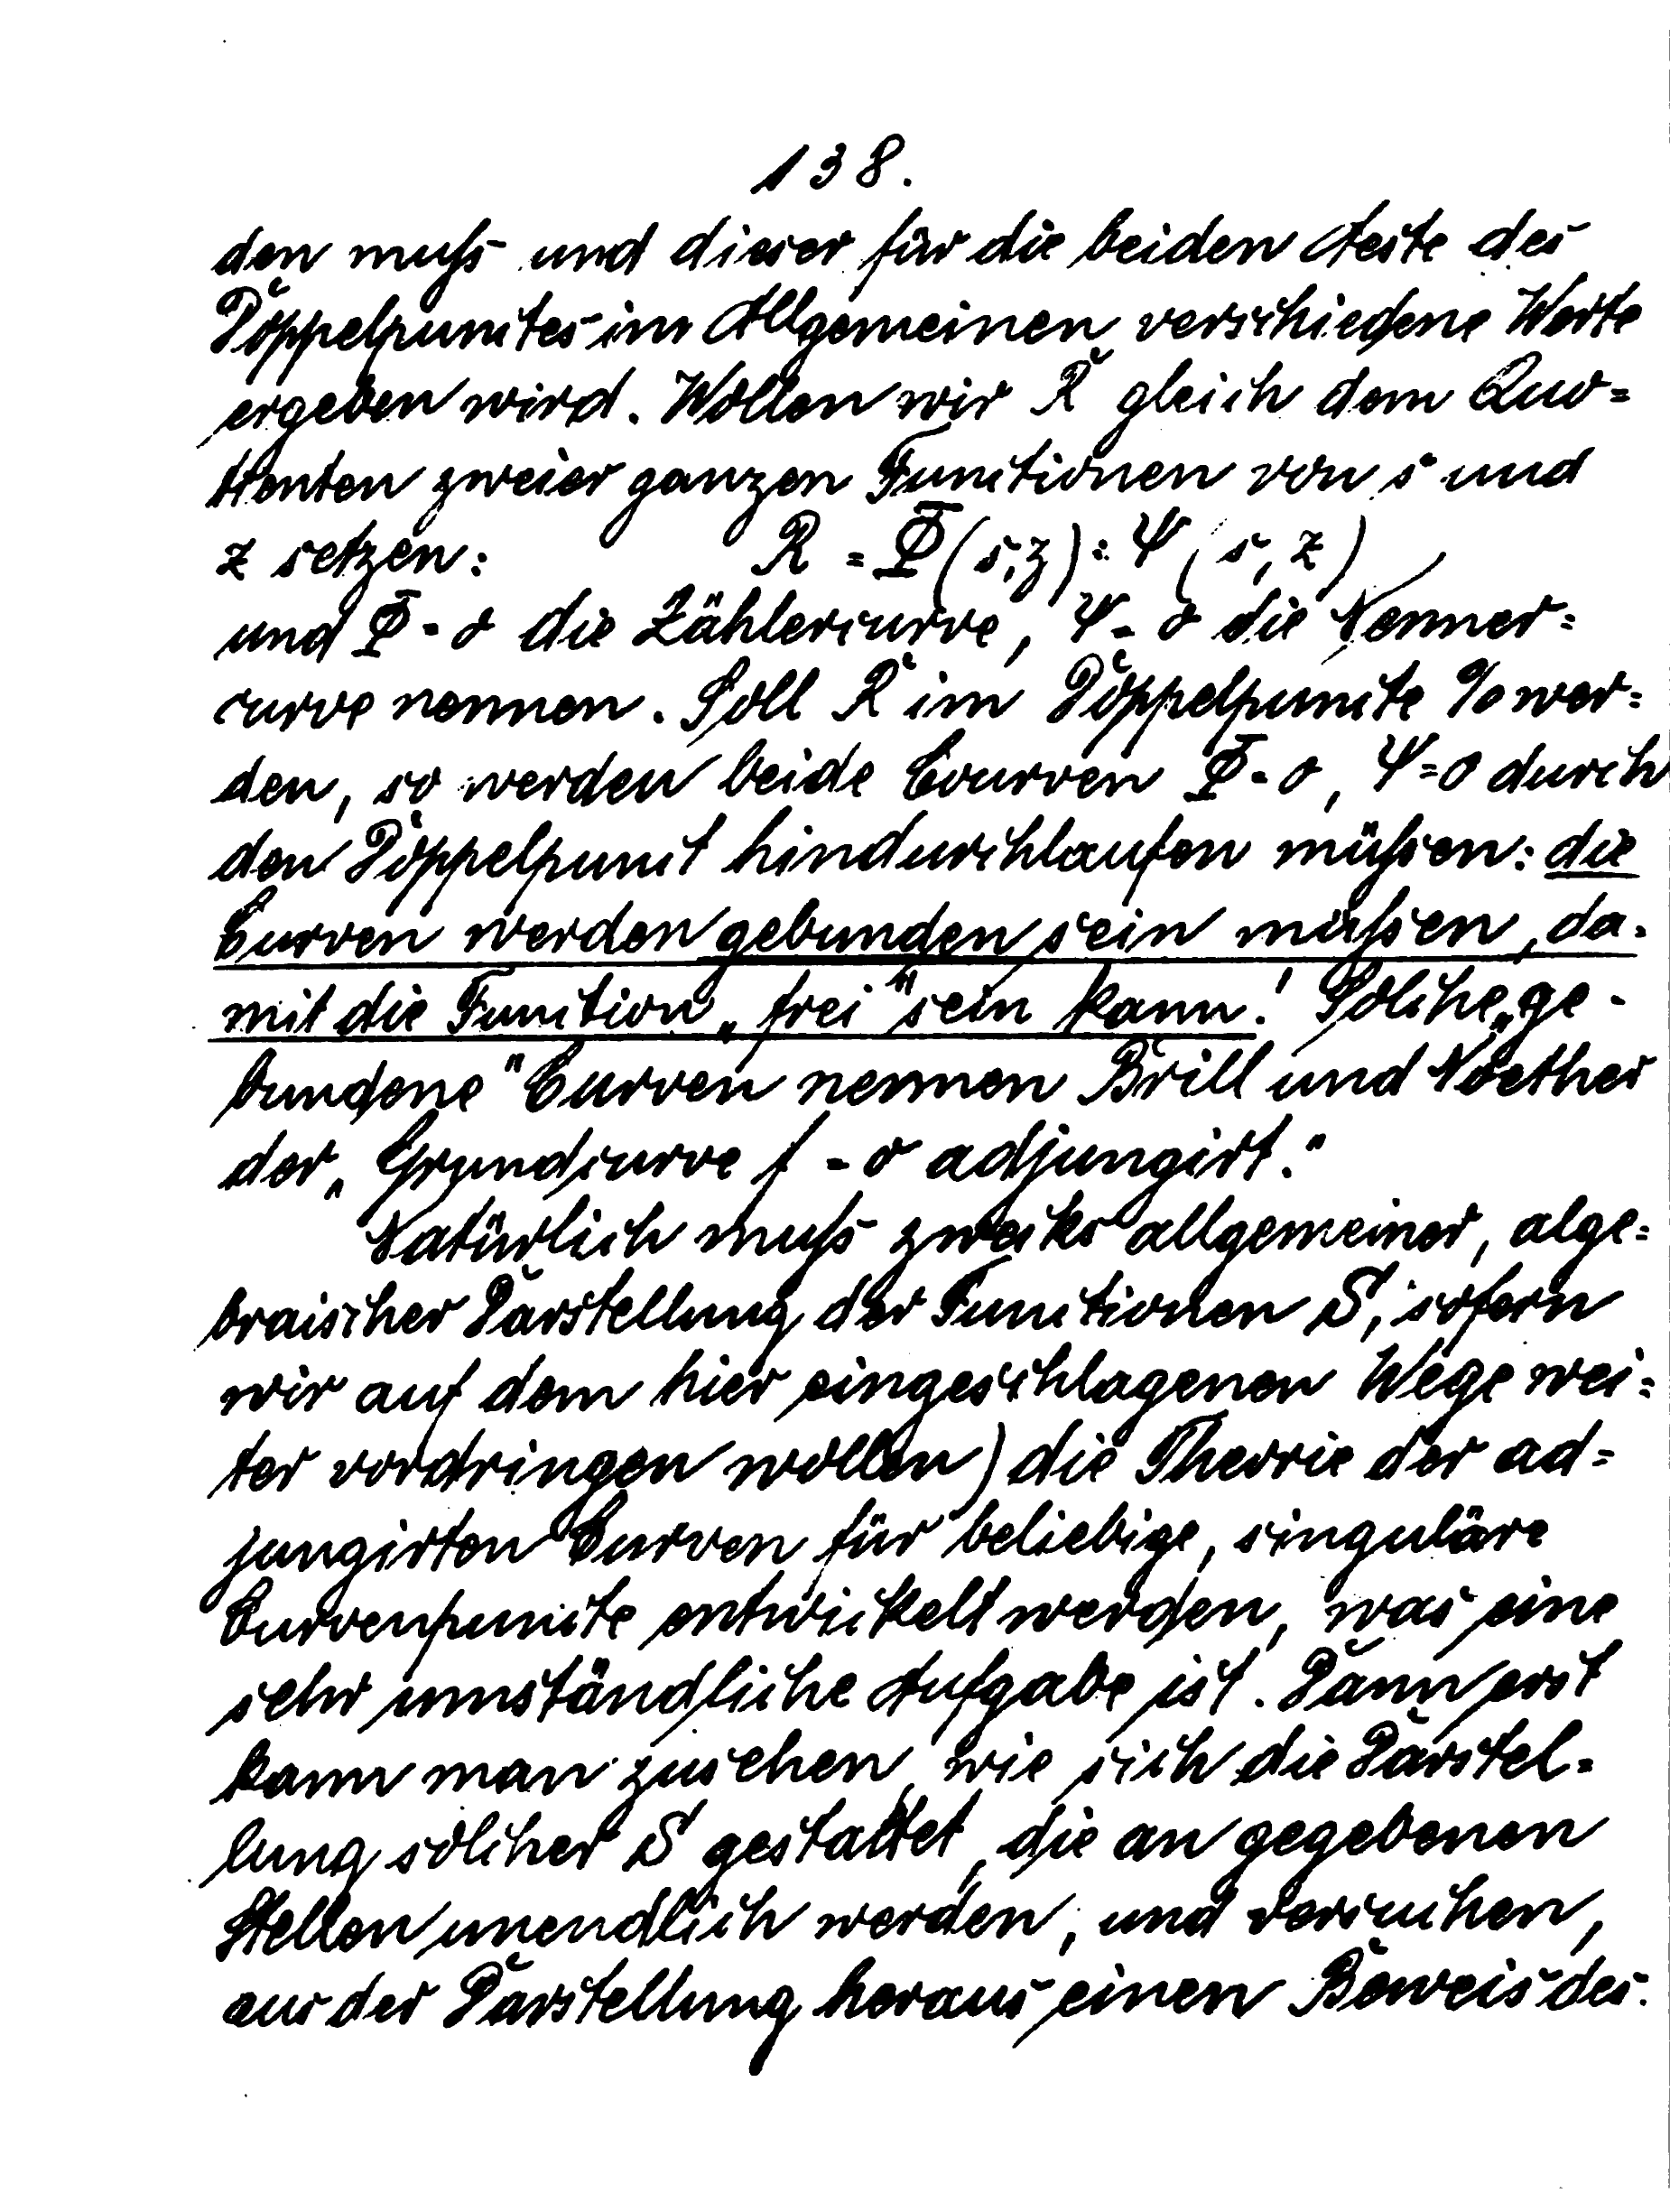 138.
den muſs und dieser für die beiden Aeste des
Doppelpunctes im Allgemeinen verschiedene Werte
ergeben wird. Wollen wir R gleich dem Quo=
tienten zweier ganzen Functionen von s und
z setzen: R = Φ(s, z) : Ψ(s, z)
und Φ = 0 die Zählercurve, Ψ = 0 die Nenner=
curve nennen. Soll R im Doppelpuncte 0/0 wer=
den, so werden beide Courven Φ = 0, Ψ = 0 durch
den Doppelpunct hindurchlaufen müſsen: die
Curven werden gebunden sein müſsen, da=
mit die Function „frei" sein kann! Solche „ge=
bundene" Curven nennen Brill und Noether
der „Grundcurve f = 0 adjungirt."
Natürlich muſs zwecks allgemeiner, alge=
braischer Darstellung der Functionen S, sofern
wir auf dem hier eingeschlagenen Wege wei=
ter vordringen wollen) die Theorie der ad=
jungirten Curven für beliebige, singuläre
Curvenpuncte entwickelt werden, was eine
sehr umständliche Aufgabe ist. Dann erst
kann man zusehen, wie sich die Darstel=
lung solcher S gestaltet, die an gegebenen
Stellen unendlich werden, und versuchen,
aus der Darstellung heraus einen Beweis des